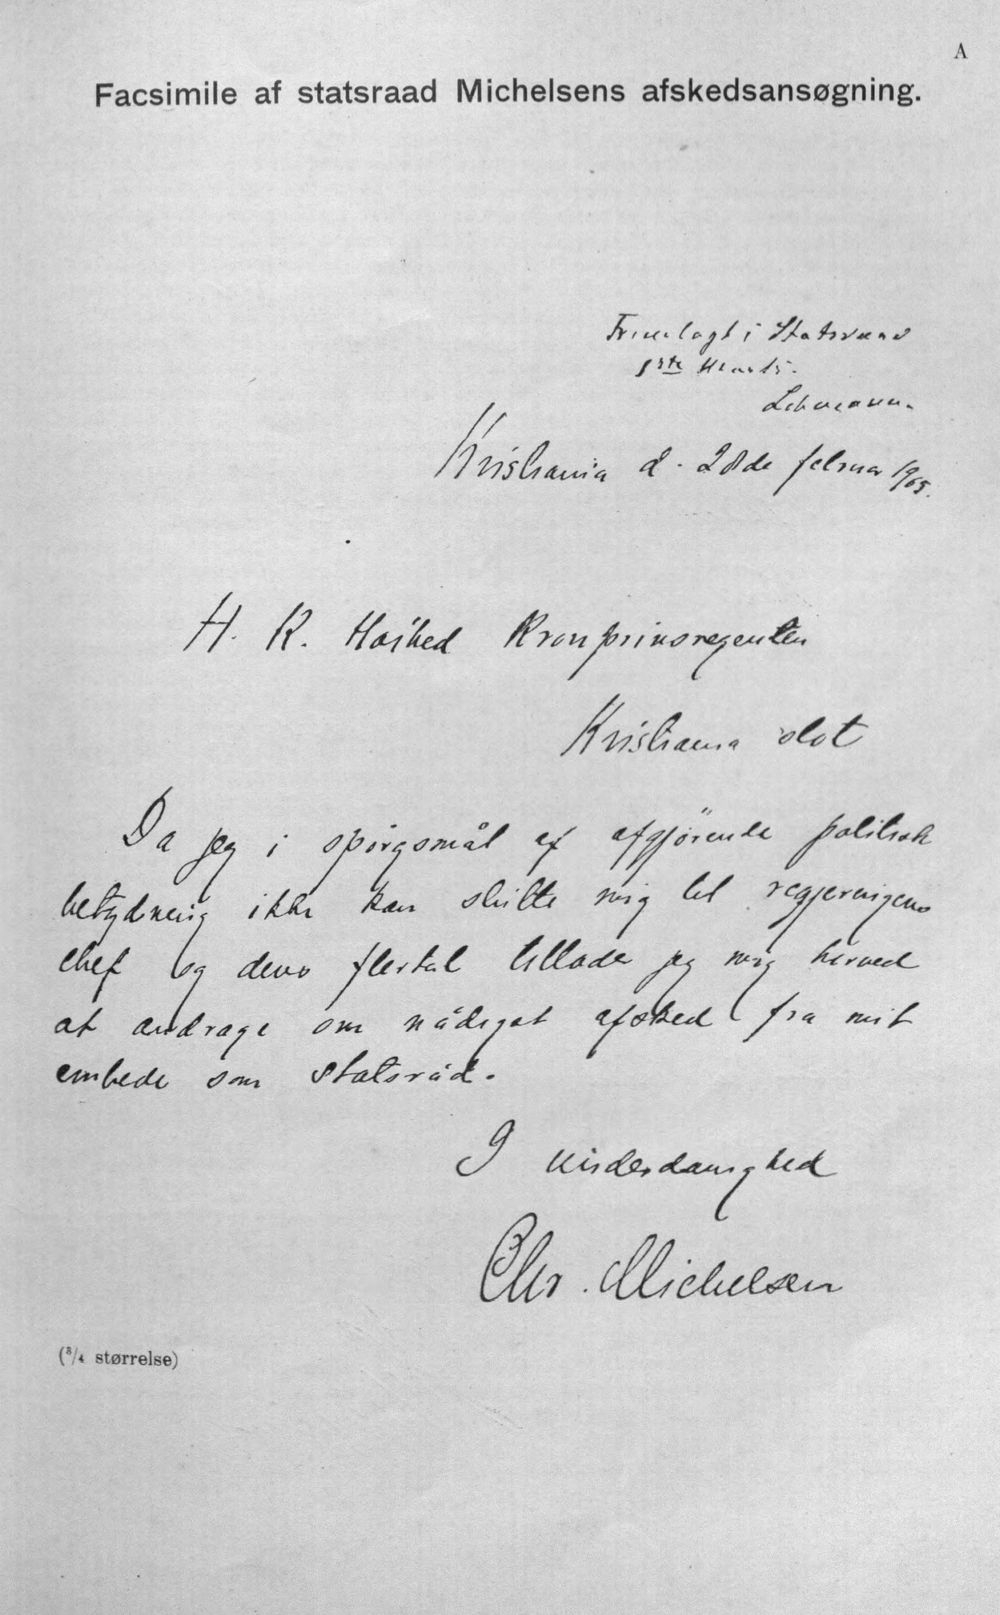 A
Facsimile af statsraad Michelsens afskedsansøgning.
Fremlagt i Statsraad
1ste Marts.
Lehmann.
Kristiania d. 28de februar 1905.
H. K. Høihed Kronprinsregenten
Kristiania slot
Da jeg i spörgsmål af afgjörende politisk
betydning ikke kan slutte mig til regjeringens
chef og dens flertal tillader jeg mig herved
at andrage om nådigst afsked fra mit
embede som statsråd.
I underdanighed
Chr. Michelsen
(3/4 størrelse)